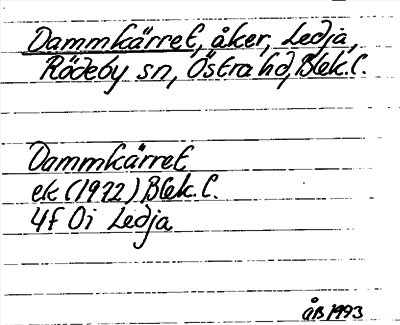 Dammkärret, åker, Ledja,
Rödeby sn, Östra hd, Blek. l.
Dammkärret
ek (1922) Blek. l.
4f Oi Ledja
åB 1993